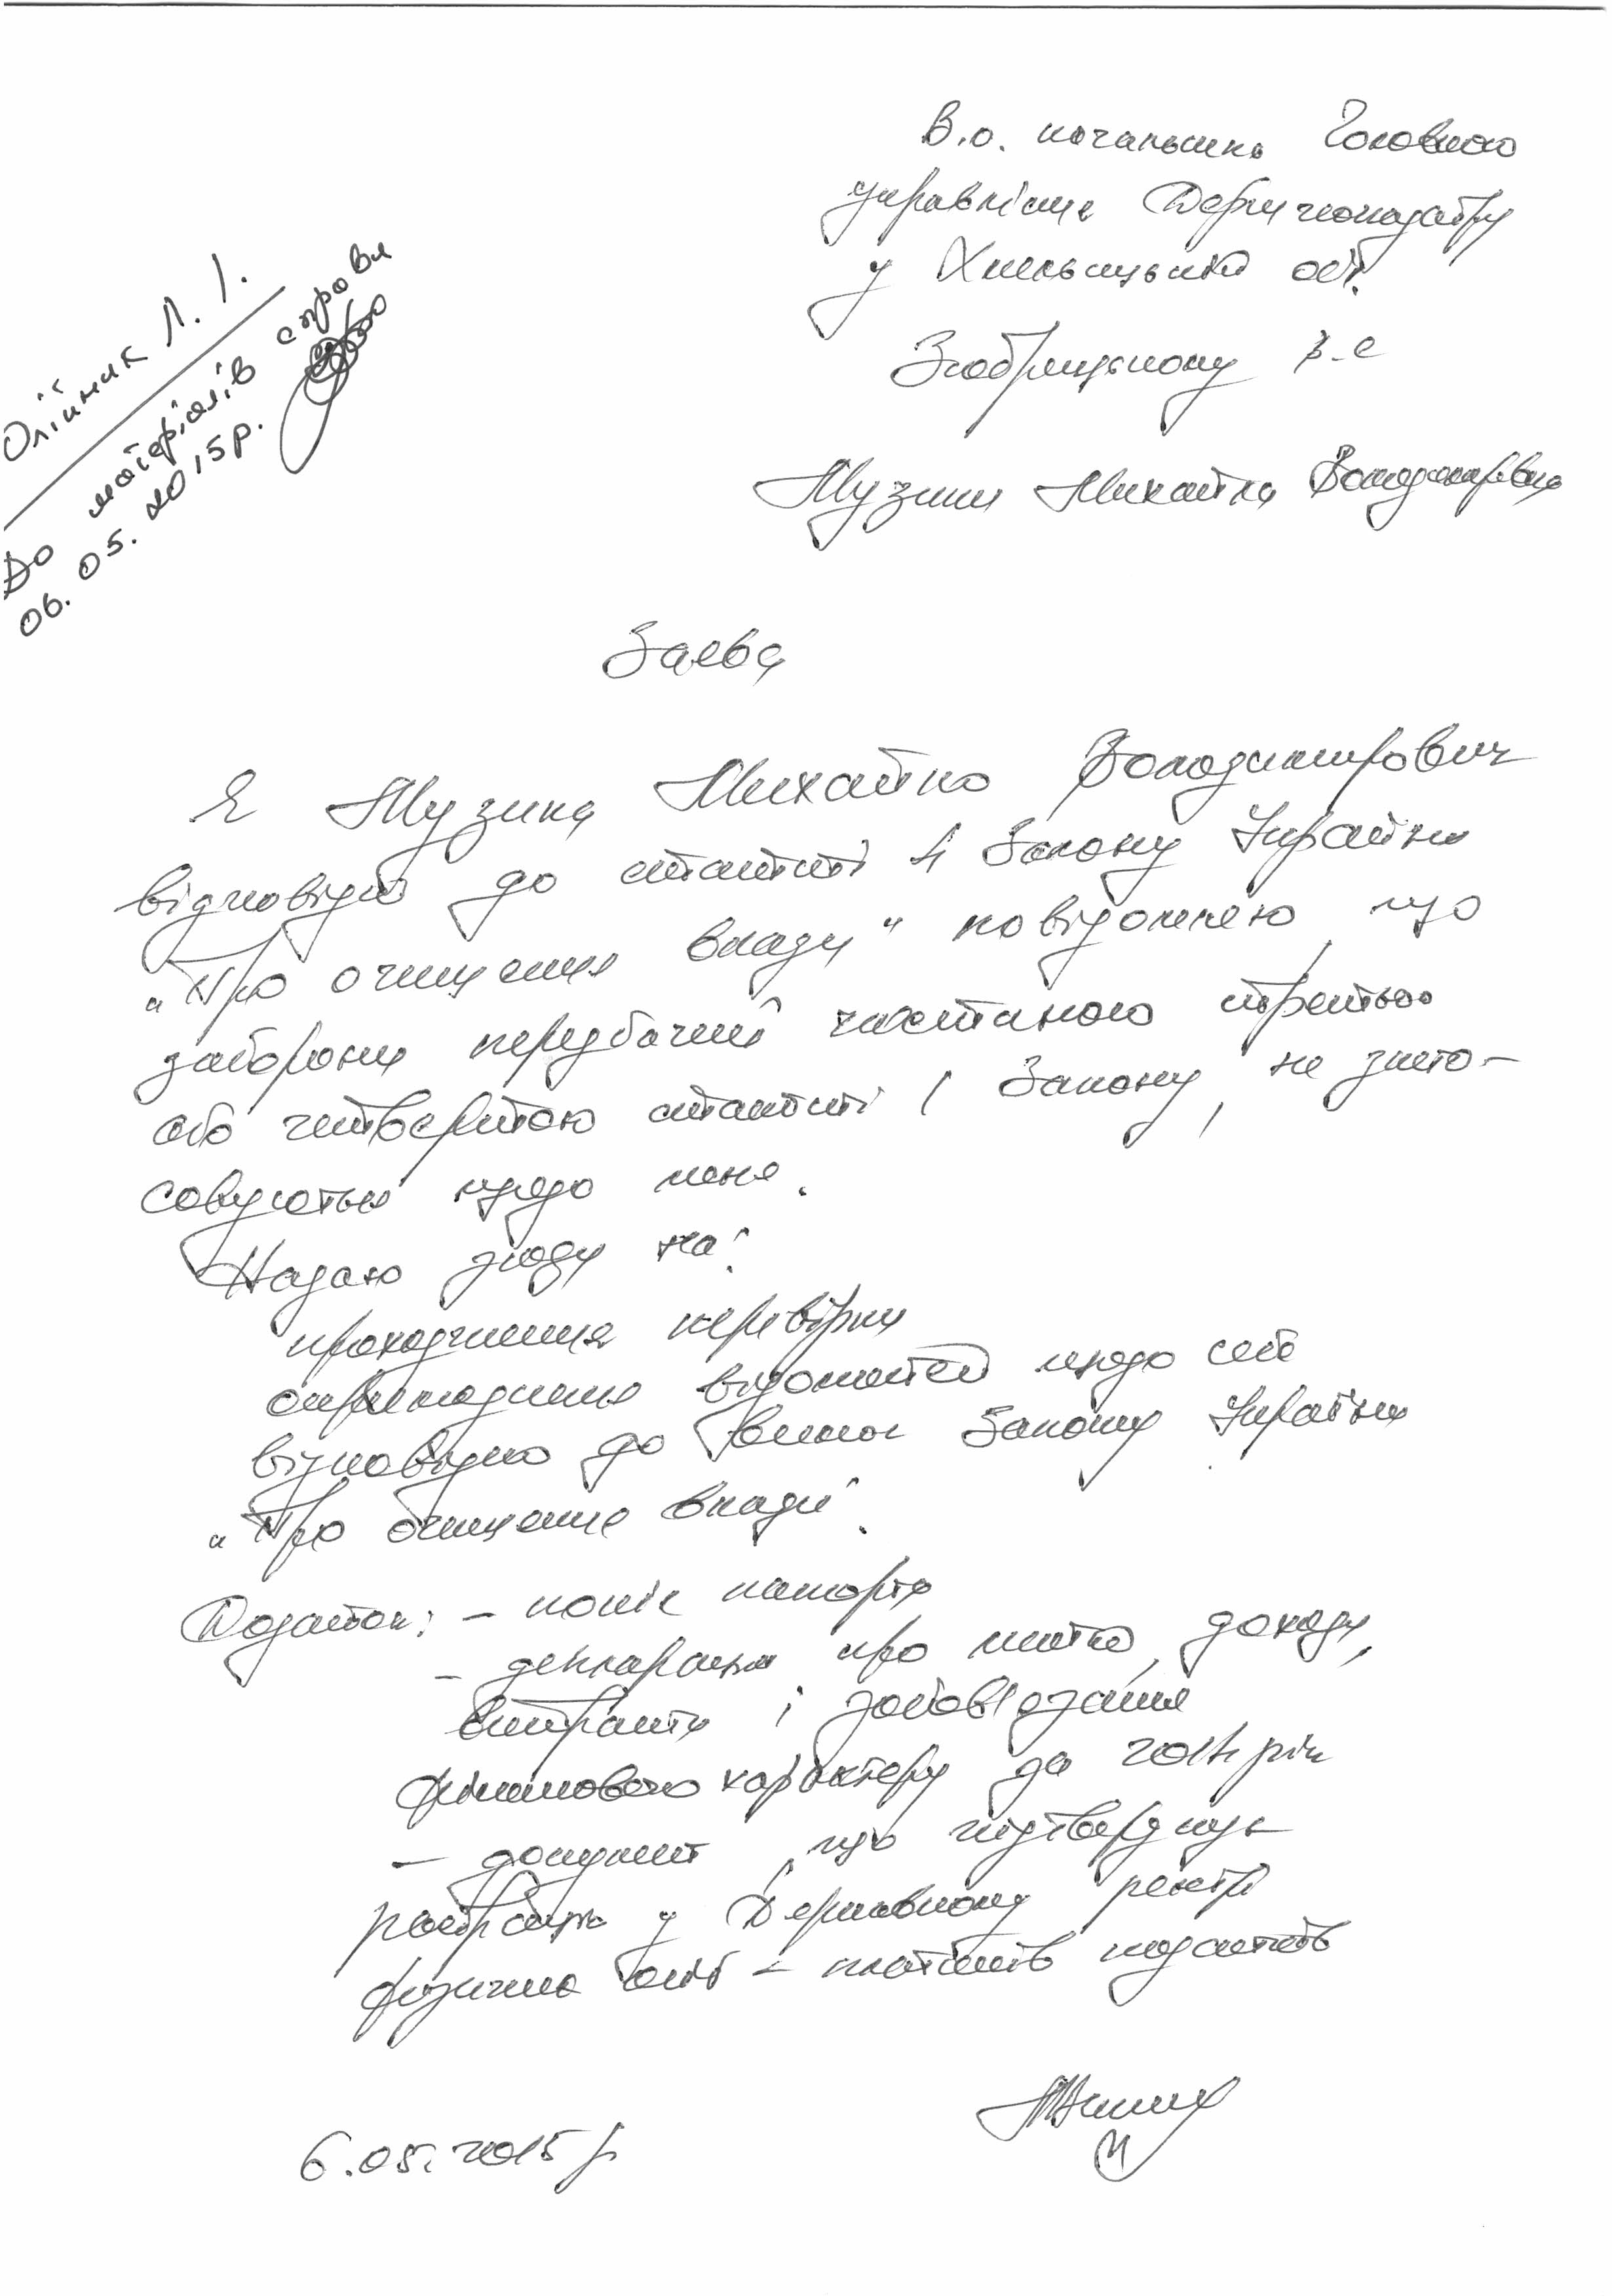 Олійник Л. І.
До матеріалів справи
06. 05. 2015 р.
В.о. начальника Головного
управління Держгеокадастру
у Хмельницькій обл.
В.С
Музики Михайла Володимировича
Заява
Я Музика Михайло Володимирович
відповідно до статті 4 Закону України
„Про очищення влади" повідомляю що
заборони передбачені частиною третьою
або четвертою статті 1 Закону, не засто-
совуються щодо мене.
Надаю згоду на:
проходження перевірки
оприлюднення відомостей щодо себе
відповідно до вимог Закону України
„Про очищення влади".
Додаток: – копія паспорта
– декларація про майно, доходи,
витрати і зобов'язання
фінансового характеру за 2014 рік
– документ, що підтверджує
реєстрацію у Державному реєстрі
фізичних осіб – платників податків
6.05.2015 р.